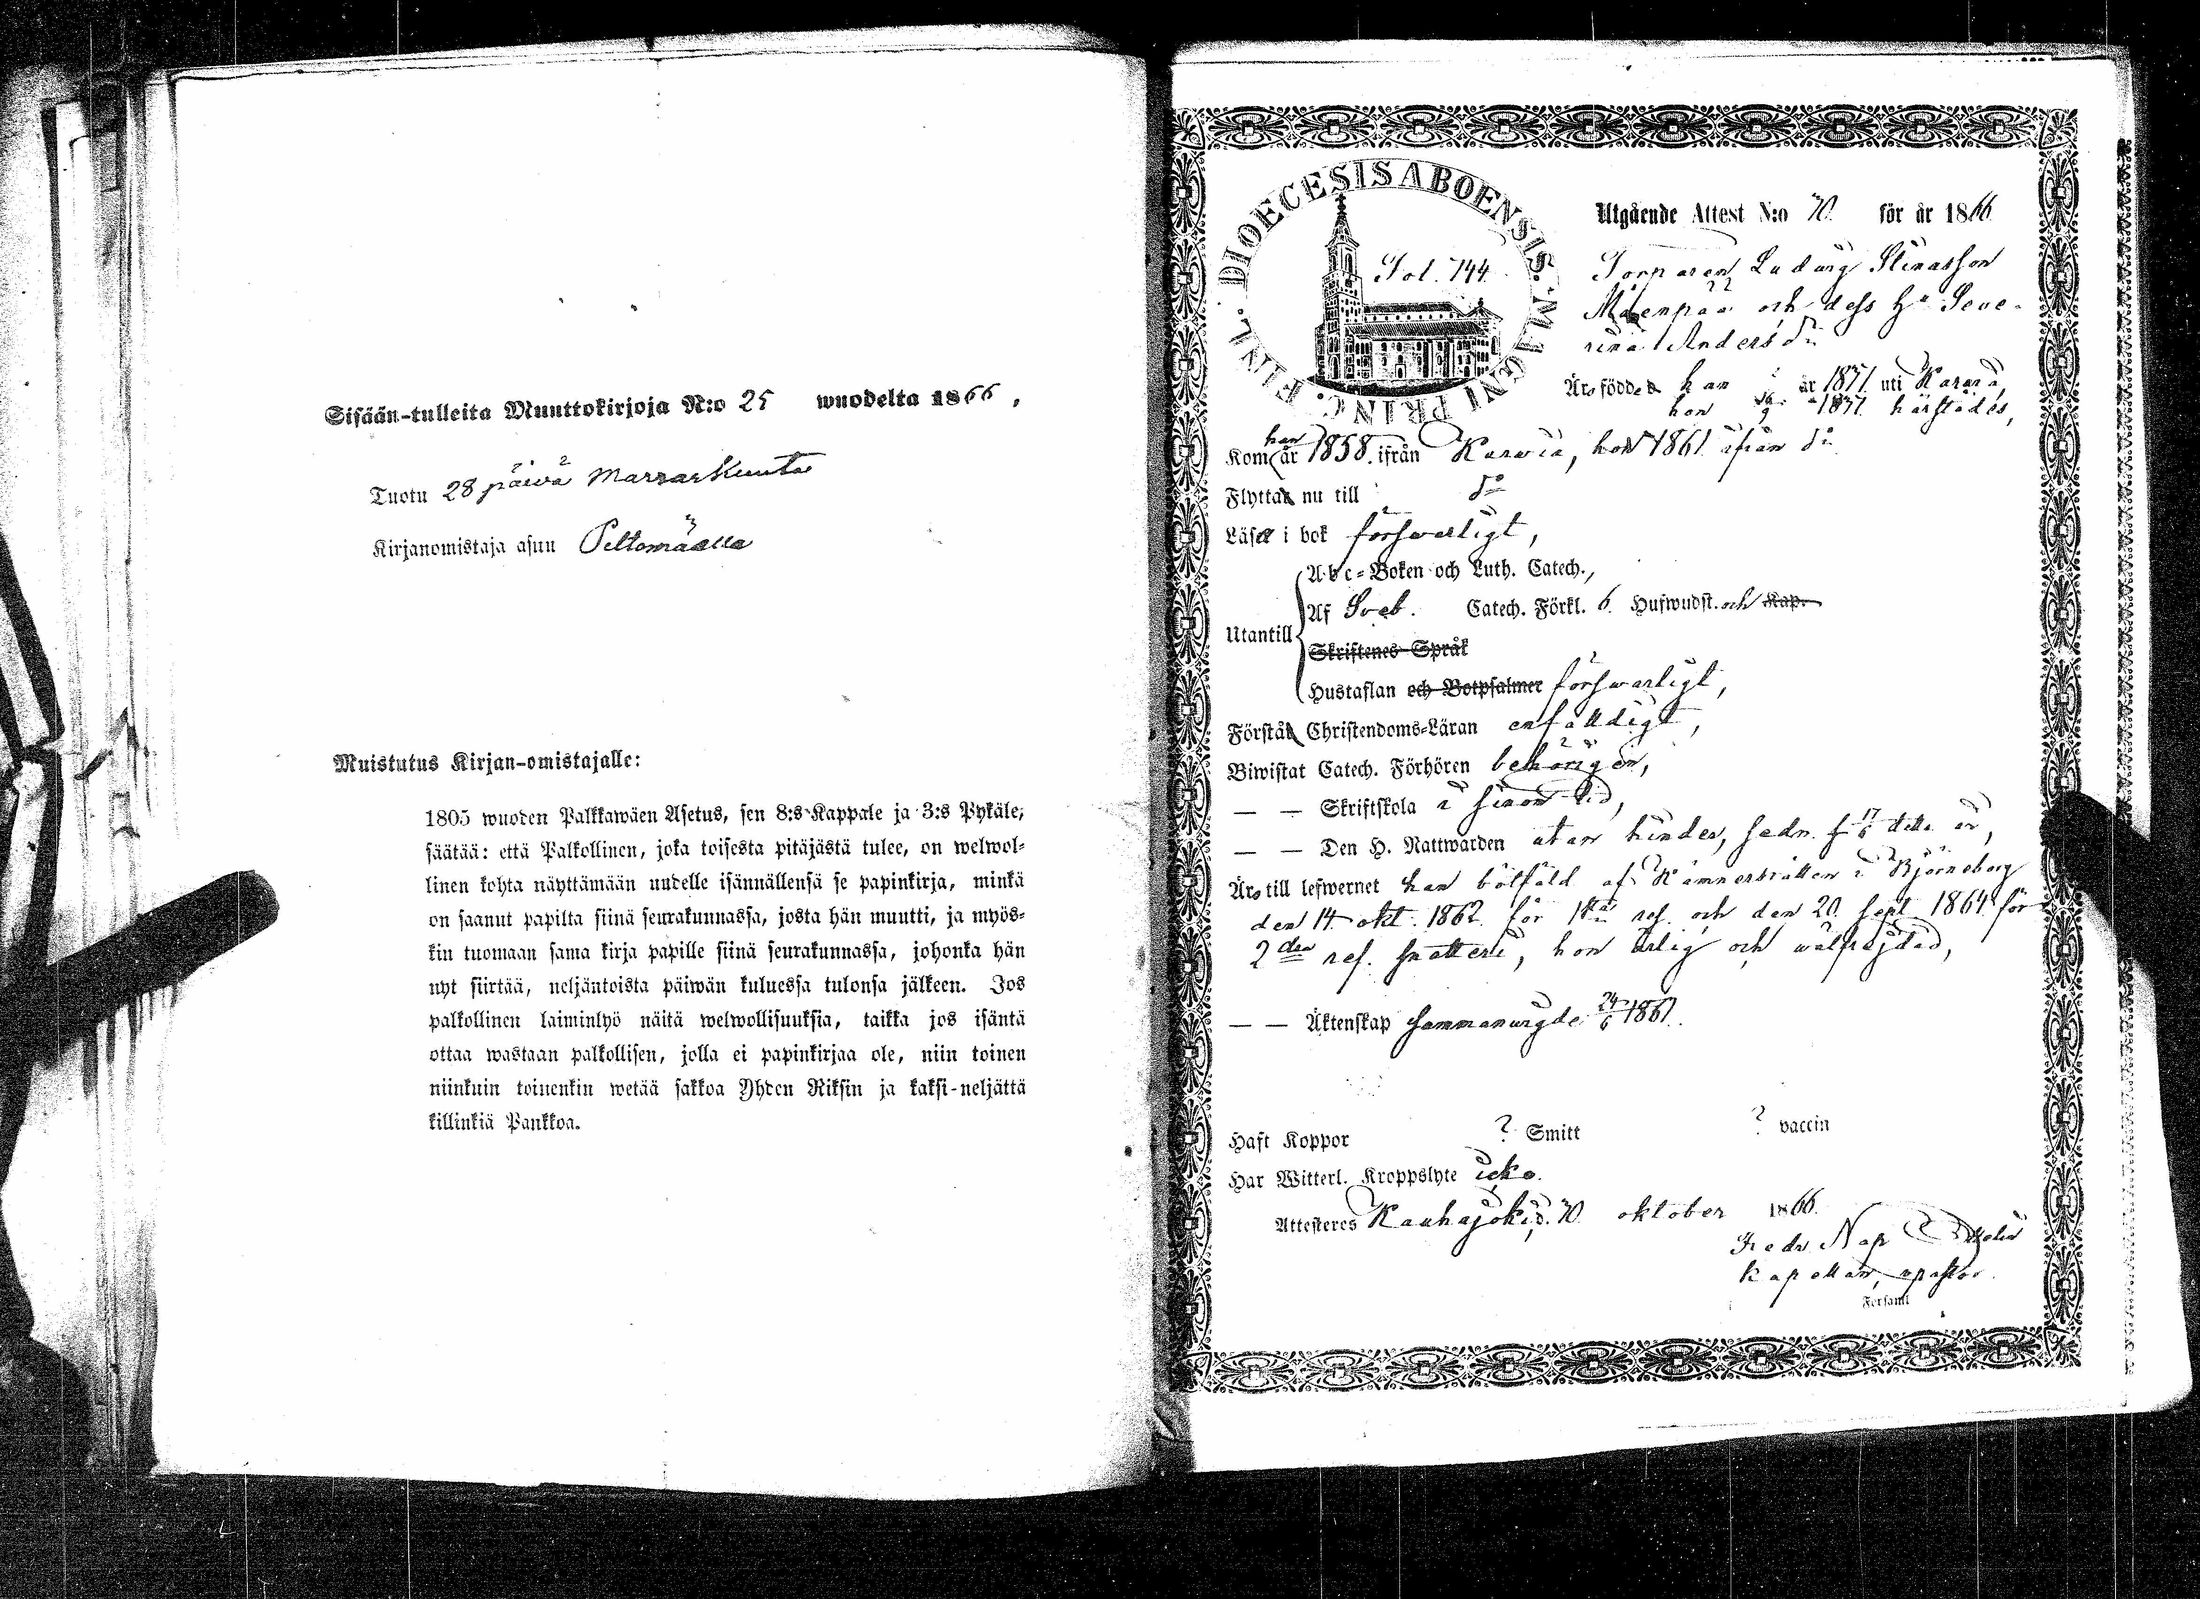 Sisään-tulleita Muuttokirjoja N:o 25 wuodelta 1866,
Tuotu 28 päivä Marraskuuta
Kirjanomistaja asuu Peltomäellä
Muistutus Kirjan-omistajalle:
1805 wuoden Palkkawäen Asetus, sen 8:s Kappale ja 3:s Pykäle,
säätää: että Palkollinen, joka toisesta pitäjästä tulee, on welwol=
linen kohta näyttämään uudelle isännällensä se papinkirja, minkä
on saanut papilta siinä seurakunnassa, josta hän muutti, ja myös=
kin tuomaan sama kirja papille siinä seurakunnassa, johonka hän
nyt siirtää, neljäntoista päiwän kuluessa tulonsa jälkeen. Jos
palkollinen laiminlyö näitä welwollisuuksia, taikka jos isäntä
ottaa wastaan palkollisen, jolla ei papinkirjaa ole, niin toinen
niinkuin toinenkin wetää sakkoa Yhden Riksin ja kaksi-neljättä
killinkiä Pankkoa.
DIOECESIS ABOENSIS. MAGNI PRINC. FINL.
Fol. 744.
Utgående Attest N:o 70. för år 1866.
Torparen Ludvig Stinasson
Mäenpää och dess H:u Seve-
rina Anders d:r
Äro födde han ? år 1837 uti Karvia,
hon 9 1837 härstädes,
Kom han år 1858 ifrån Karvia, hon 1861 ifrån d:o
Flytta nu till d:o
Läsa i bok försvarligt,
Utantill
Abc=Boken och Luth. Catech.,
Af Sveb. Catech. Förkl. 6 Hufwudst. och Kap.
Skriftenes Språk
Hustaflan och Botpsalmer försvarligt,
Förstå Christendoms=Läran enfaldigt,
Biwistat Catech. Förhören behörigen,
— — Skriftskola i sinom tid,
— — Den H. Nattwarden utan hinder, sedn. g. 17/6 detta år,
Äro till lefwernet han bötfäld af Kämnersrätten i Björneborg
den 14 okt. 1862 för 1:sta res. och den 20 sept 1864 för
2:dra res. snatteri, hon ärlig och välfrejdad,
— — Äktenskap sammanvigde 24/6 1861.
Haft Koppor ? Smitt ? vaccin
Har Witterl. Kroppslyte icke.
Attesteres Kauhajoki, d. 30 oktober 1866.
Fredr. Nap
Kapellan, v. pastor.
Forsaml